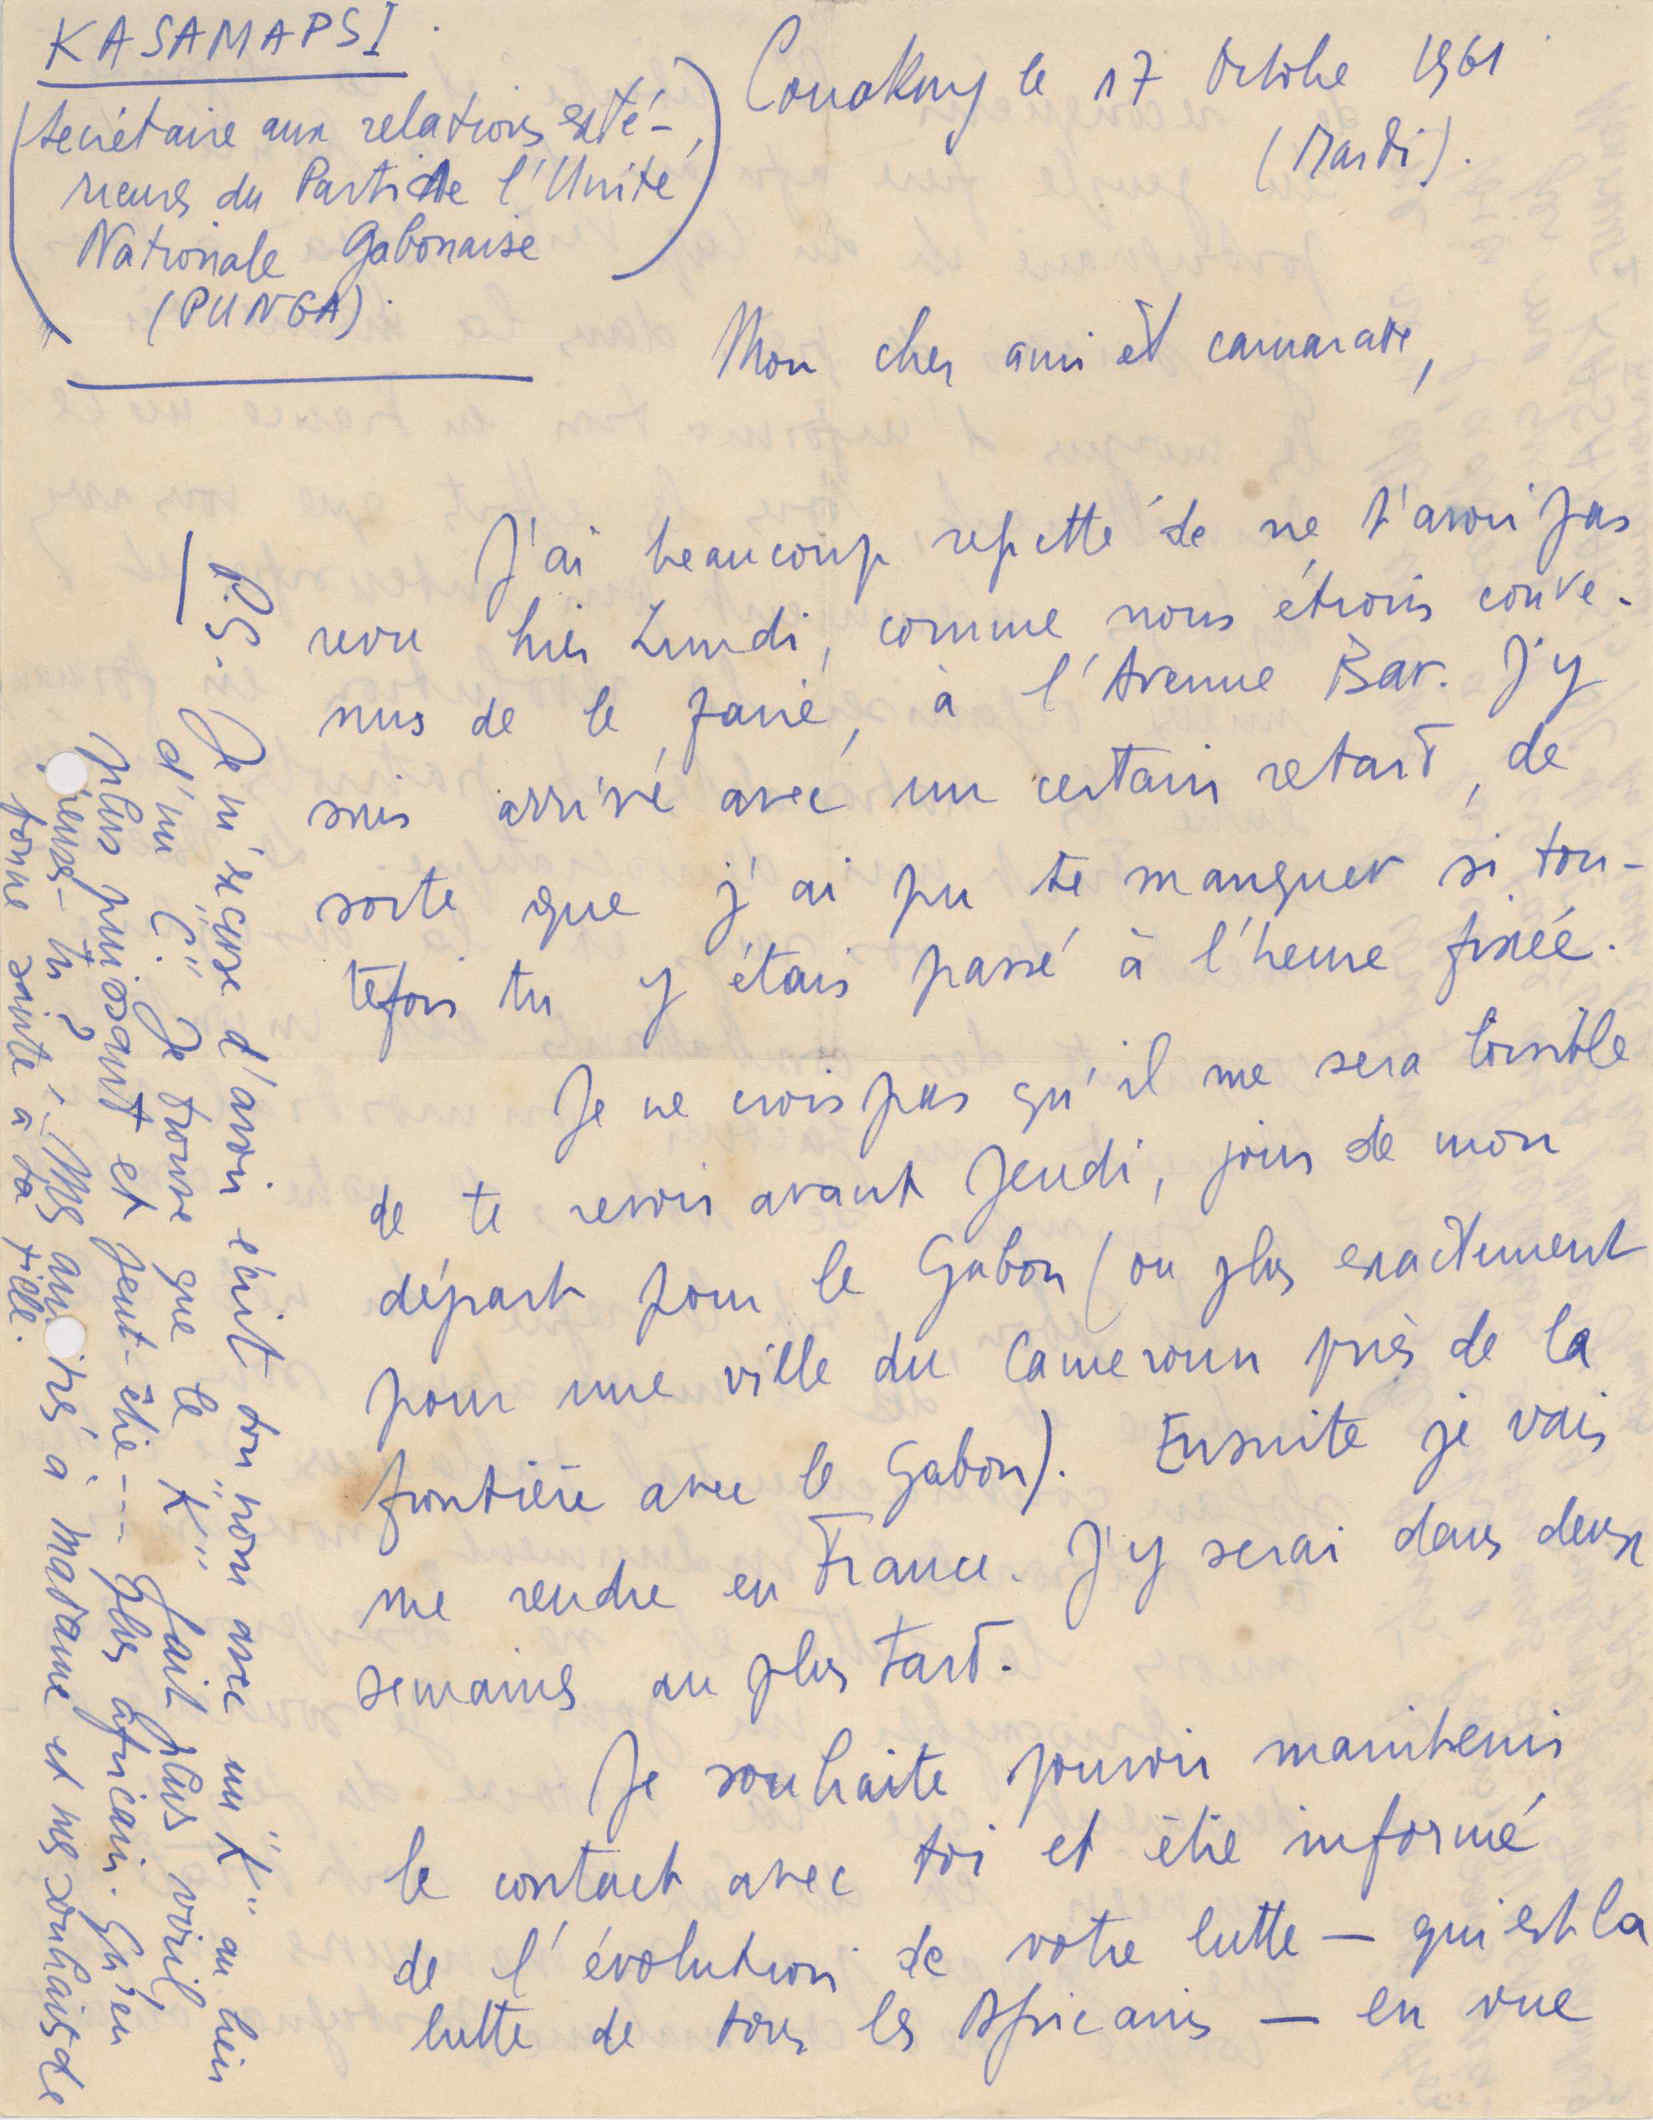 KASAMAPSI
(Secrétaire aux relations exté-
rieures du Parti de l'Unité
Nationale Gabonaise
(PUNGA)
Conakry le 17 Octobre 1961
(Mardi).
Mon cher ami et camarade,
J'ai beaucoup regretté de ne t'avoir pas
revu hier Lundi, comme nous étions conve-
nus de le faire, à l'Avenue Bar. J'y
suis arrivé avec un certain retard, de
sorte que j'ai pu te manquer si tou-
tefois tu y étais passé à l'heure fixée.
Je ne crois pas qu'il me sera possible
de te revoir avant Jeudi, jour de mon
départ pour le Gabon (ou plus exactement
pour une ville du Cameroun près de la
frontière avec le Gabon). Ensuite je vais
me rendre en France. J'y serai dans deux
semaines au plus tard.
Je souhaite pouvoir maintenir
le contact avec toi et être informé
de l'évolution de votre lutte — qui est la
lutte de tous les Africains — en vue
P.S. Je m'excuse d'avoir écrit ton nom avec un "K" au lieu
d'un "C". Je trouve que le "K" fait plus viril,
plus puissant et peut-être --- plus africain. Qu'en
penses-tu? Mes amitiés à madame et mes souhaits de
bonne santé à ta fille.